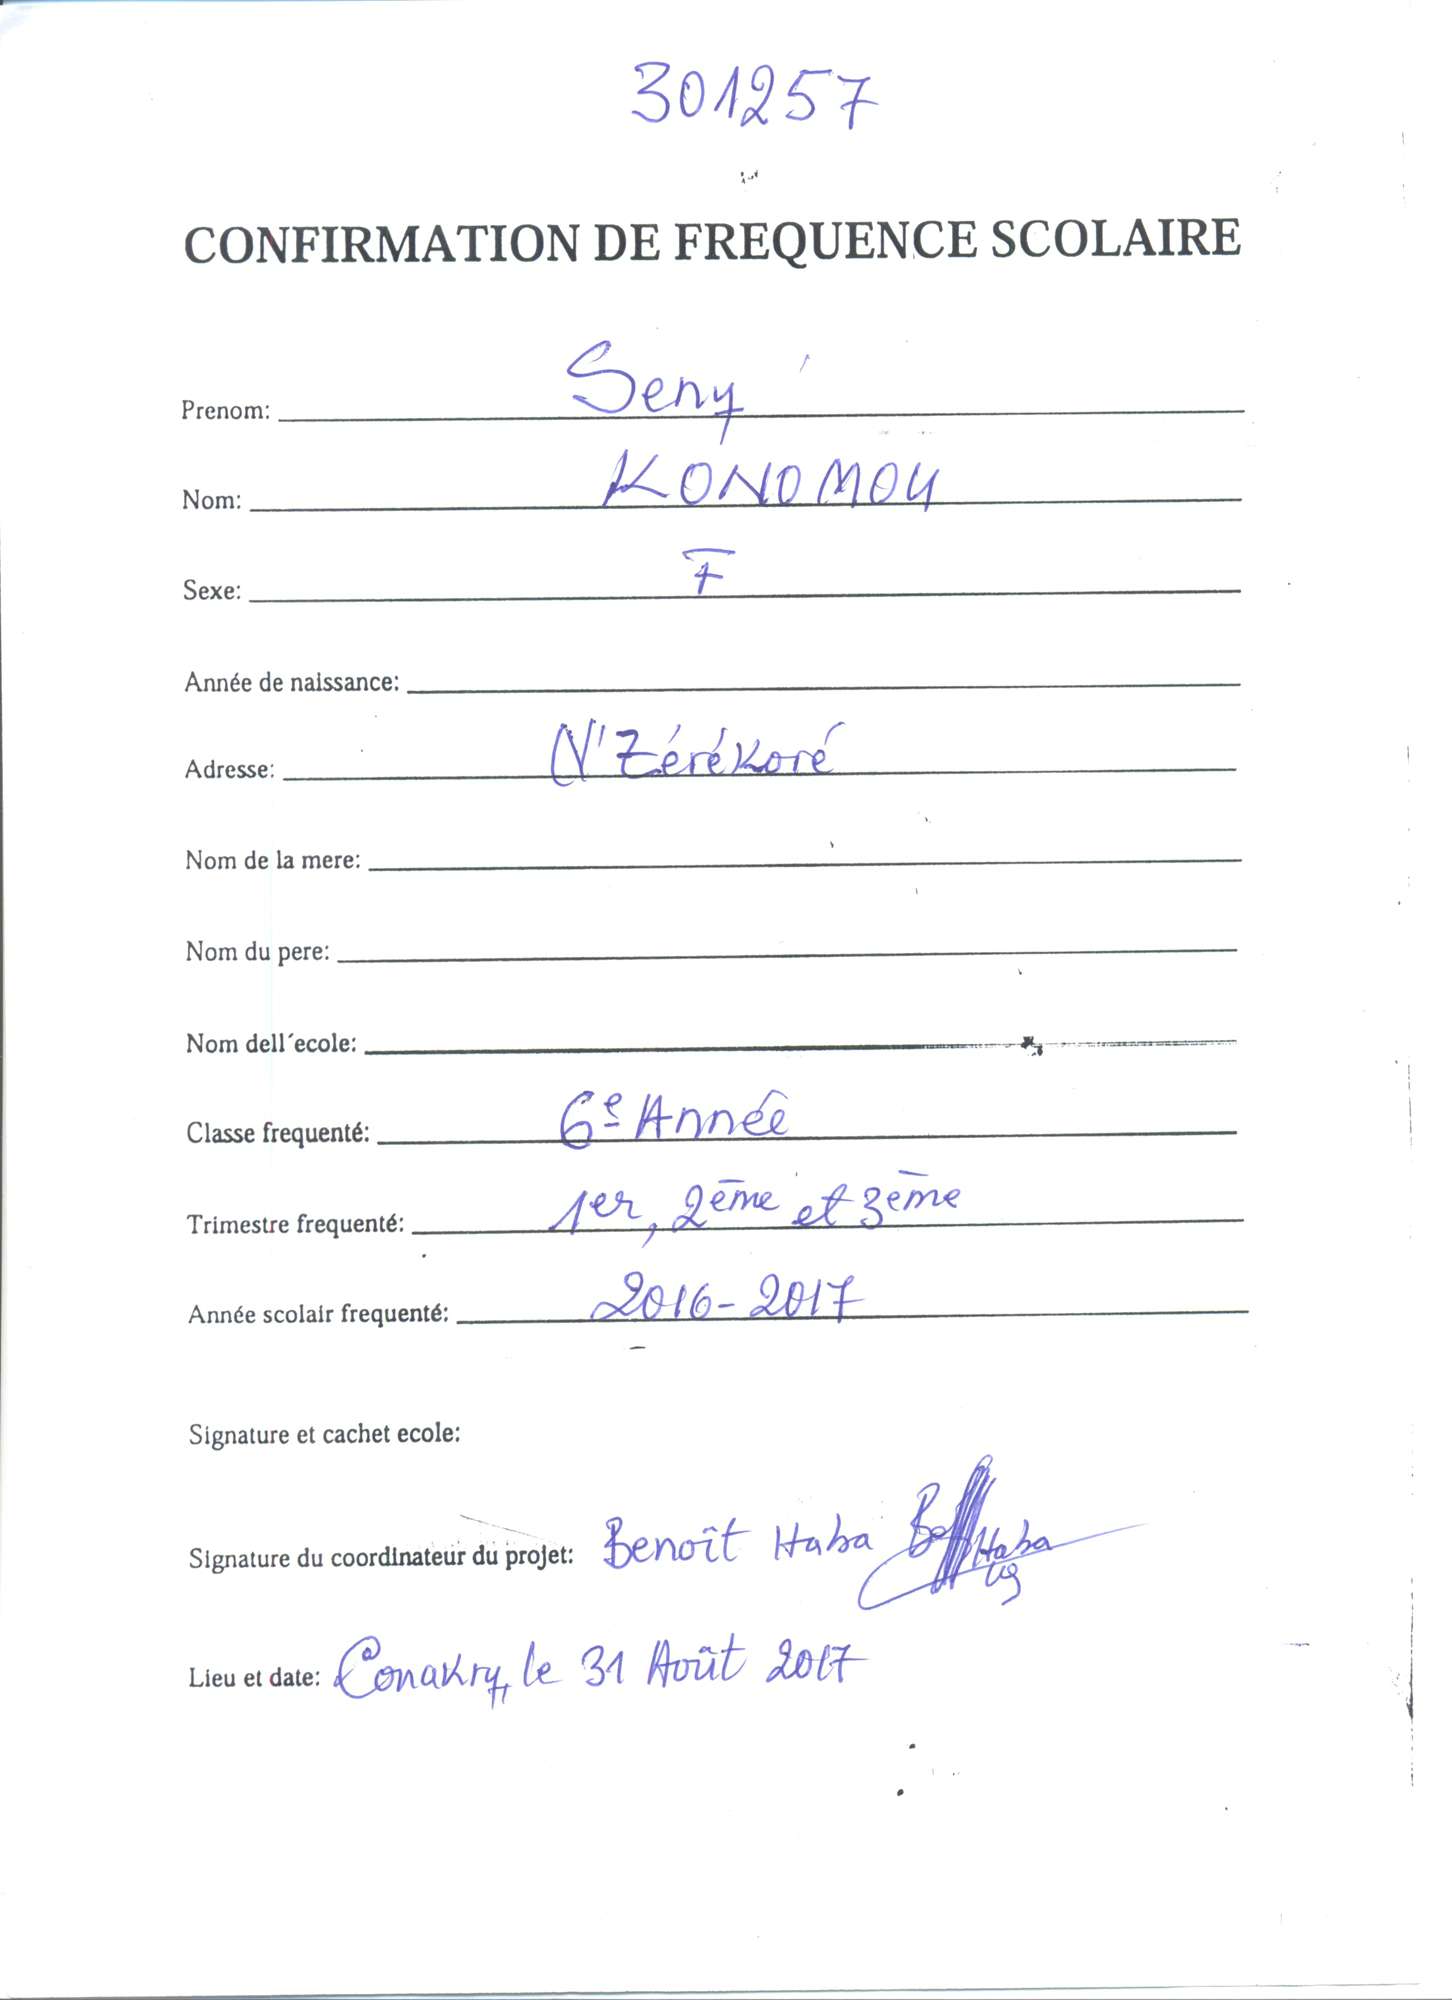 301257
CONFIRMATION DE FREQUENCE SCOLAIRE
Prenom: Seny
Nom: KONOMOU
Sexe: F
Année de naissance:
Adresse: N'Zérékoré
Nom de la mere:
Nom du pere:
Nom dell´ecole:
Classe frequenté: 6e Année
Trimestre frequenté: 1er, 2ème et 3ème
Année scolair frequenté: 2016-2017
Signature et cachet ecole:
Signature du coordinateur du projet: Benoît Haba Haba
Lieu et date: Conakry, le 31 Août 2017